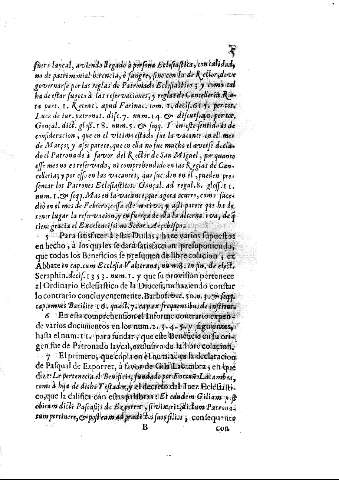 fuere laycal, aviendo llegado à persona Eclesiastica, con calidad,
no de patrimonial herencia, ò sangre, sino con la de Rector, deve
governarse por las reglas de Patronado Eclesiastico; y como tal
ha de estar sujeto à las reservaciones, y reglas de Cancelleria, Ro-
ta part. 1. Recent. apud Farinac. tom. 1. decis. 615. per tot.
Luca de iur. patronat. disc. 7. num. 14. & discurs. 40. per tot.
Gonçal. dict. glos. 18. num. 5. & seqq. Y en este sentido es de
consideracion, que en el vltimo estado fue la vacante en el mes
de Março, y assi parece, que en ella no fue mucho el averse decla-
do el Patronado à favor del Rector de San Miguel, por quanto
esse mes no es reservado, ni comprehendido en las Reglas de Can-
celleria; y por esso en las vacantes, que suceden en él, pueden pre-
sentar los Patrones Eclesiasticos. Gonçal. ad regul. 8. glos. 11.
num. 1. & seqq. Mas en la vacante, que agora ocurre, como suce-
diò en el mes de Febrero, cessa este motivo, y assi parece que ha de
tener lugar la reservacion, y en fuerça de ella la alternativa, de que
tiene gracia el Excelentissimo Señor Arçobispo.
5 Para satisfacer à estas Dudas, haze varios supuestos
en hecho, à los quales se darà satisfaccion, presuponiendo,
que todos los Beneficios se presumen de libre colacion, ex
Abbate in cap. cum Ecclesia Vulterana, num. 8. in fin. de elect.
Seraphin. decis. 1353. num. 1. y que su provision pertenece
al Ordinario Eclesiastico de la Diocesi, no haziendo constar
lo contrario concluyentemente. Barbos. voc. 50. n. 3. & seqq.
6 En esta comprehension el Informe contrario expen-
de varios documentos en los num. 2. 3. 4. 5. y siguientes,
hasta el num. 11. para fundar, que este Beneficio en su ori-
gen fue de Patronado laycal, exclusivo de la libre colacion.
7 El primero, que copia en el num. 2. es la declaracion
de Pasqual de Exporrer, à favor de Giliam Lacambra, en que
dize: Le pertenecia el Beneficio, fundado por Fortuño Lacambra,
como à hijo de dicho Testador, y el decreto del Juez Eclesiasti-
co, que la califica con estas palabras: Et eudem Giliam post
obitum dicti Pascasij de Exporrer,
B con